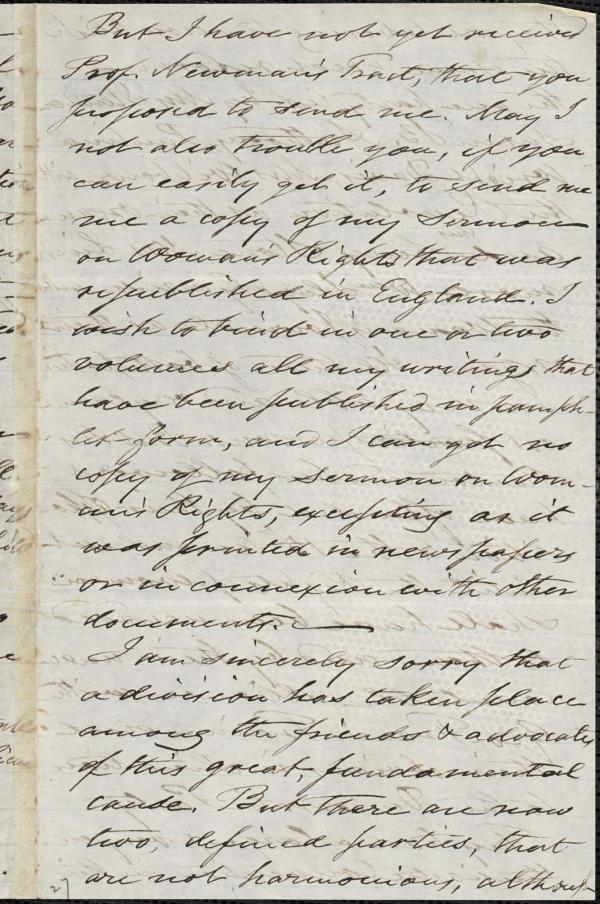 But I have not yet received
Prof. Newman's Tract, that you
proposed to send me. May I
not also trouble you, if you
can easily get it, to send me
me a copy of my Sermon
on Woman's Rights that was
republished in England. I
wish to bind in one or two
volumes all my writings that
have been published in pamph-
let form, and I can get no
copy of my Sermon on Wom-
an's Rights, excepting as it
was printed in newspapers
or in connexion with other
documents.—
I am sincerely sorry that
a division has taken place
among the friends & advocates
of this great, fundamental
cause. But there are now
two, defined parties, that
are not harmonious, although
27